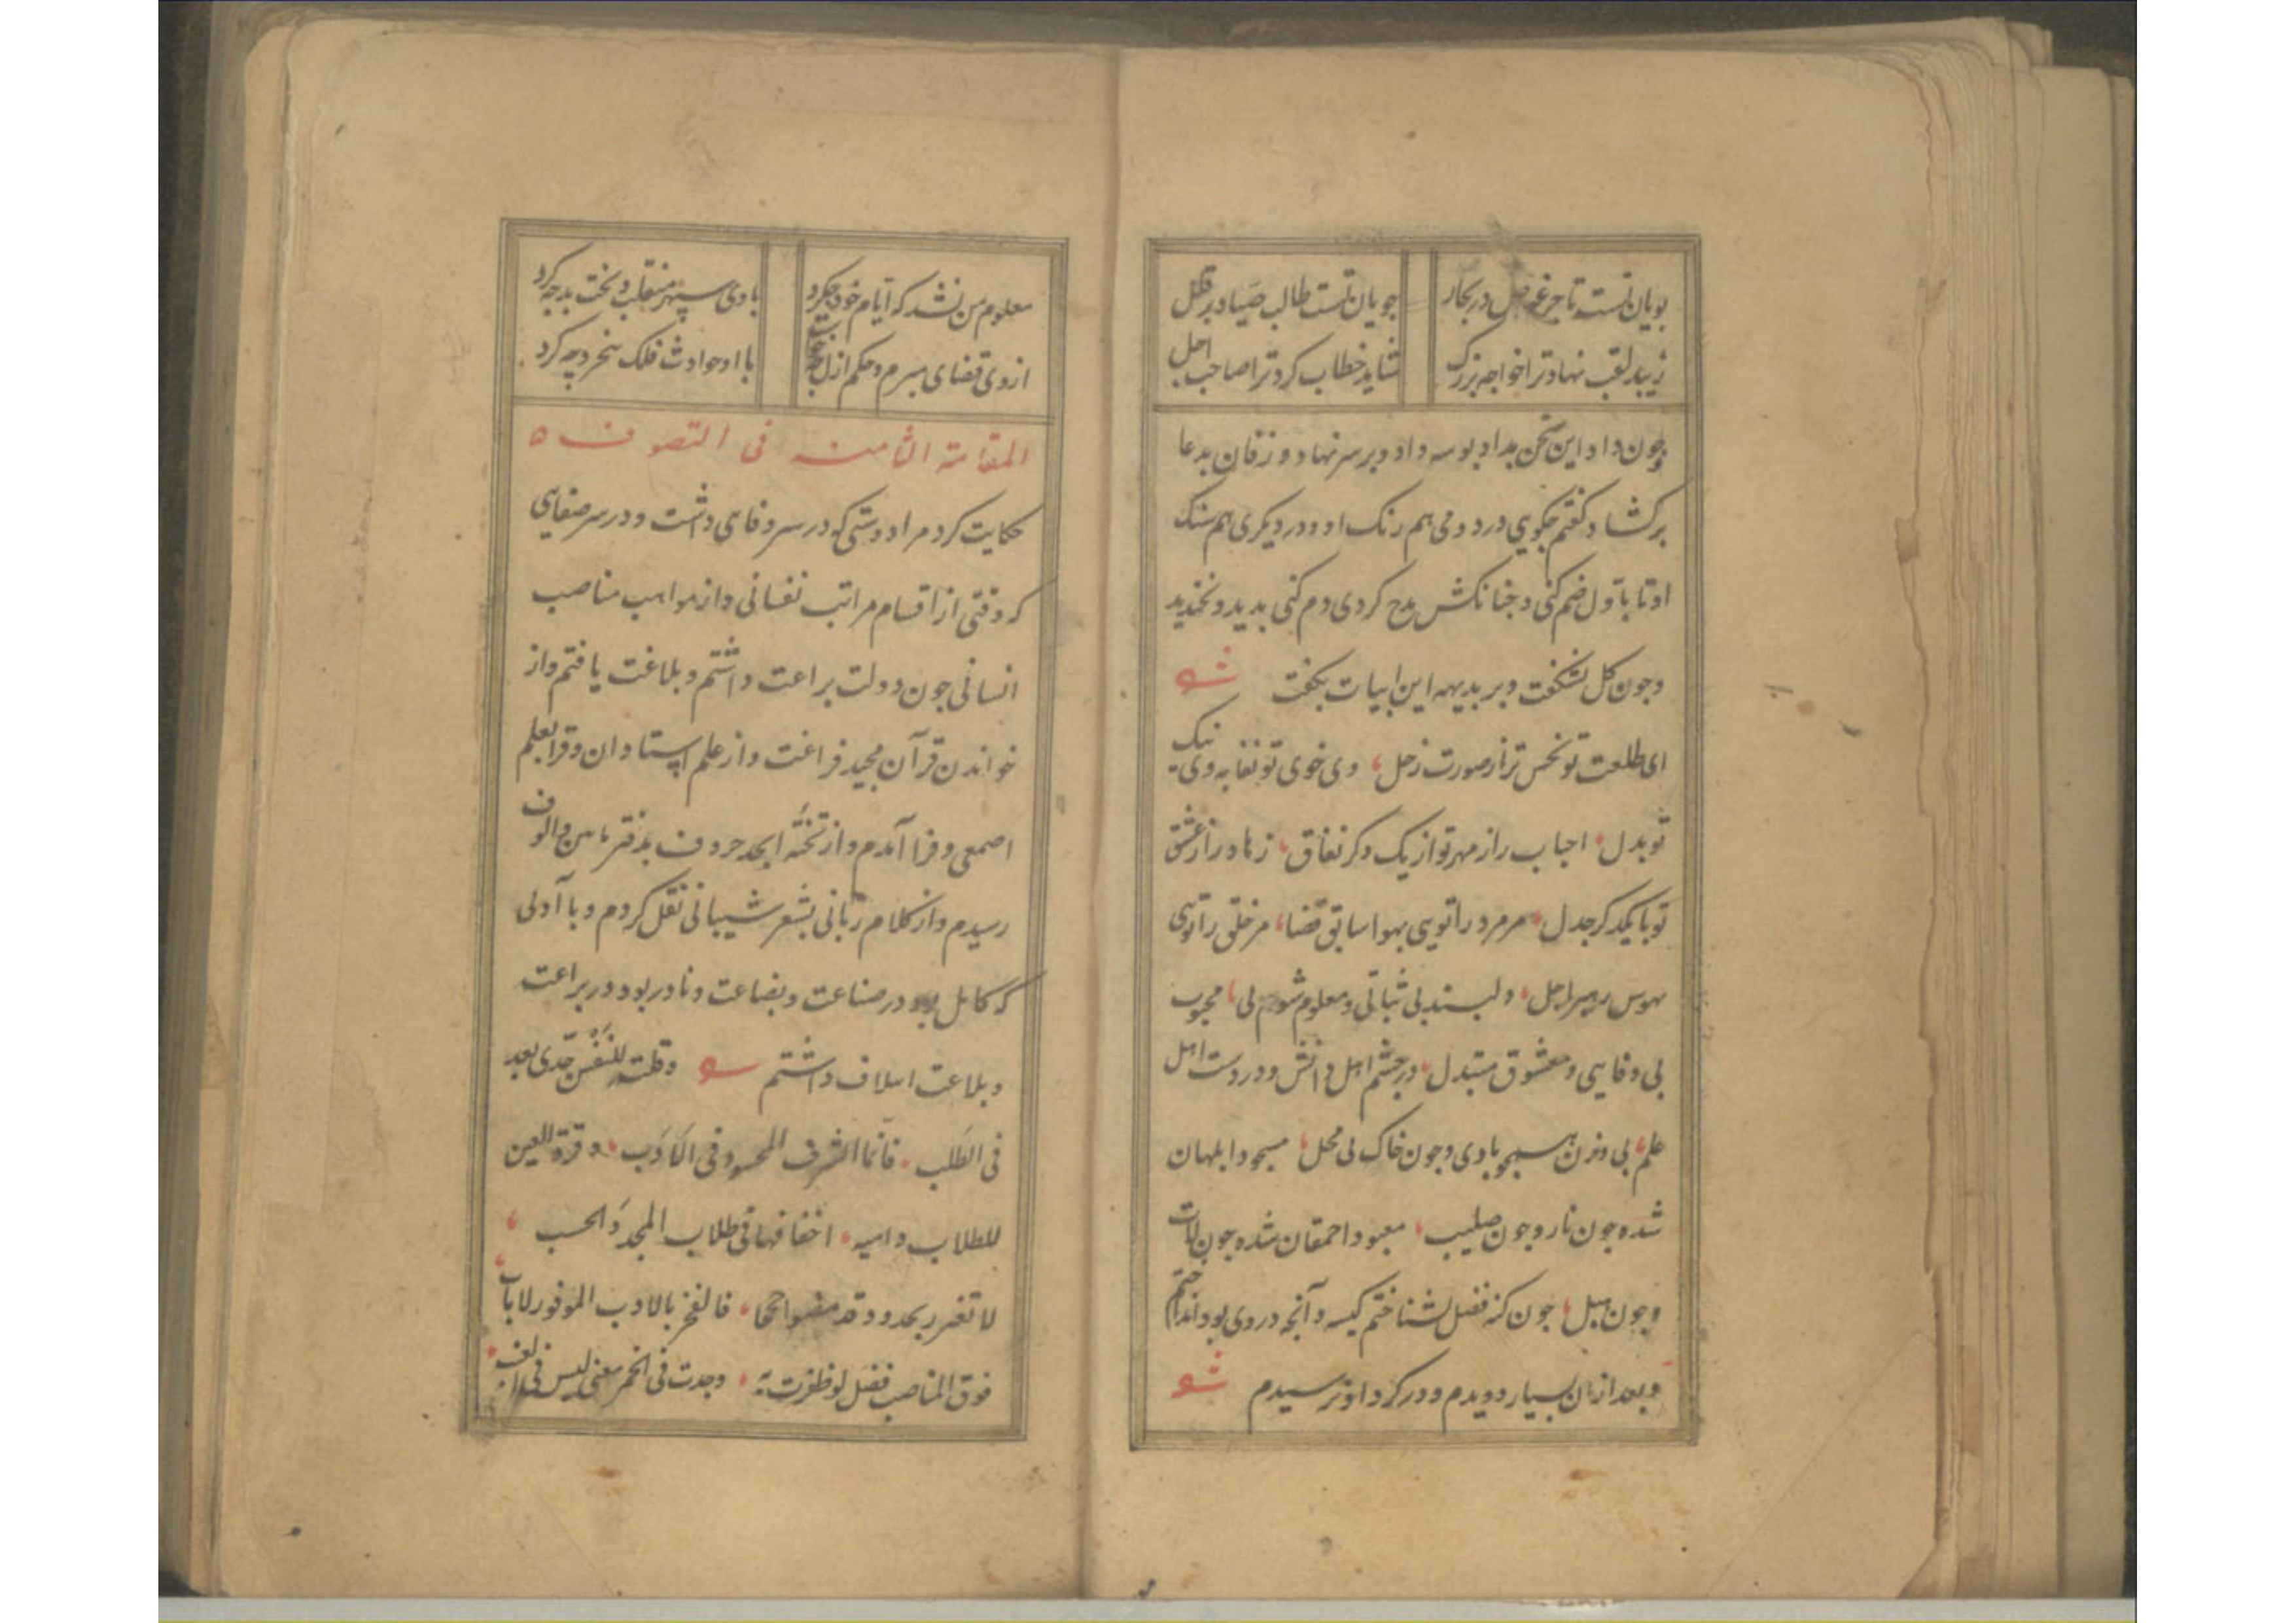 بویان تست تاجر غواص در بحار جویان تست طالب صیاد بر قلل
زیبد لقب نهاد ترا خواجه بزرک شاید خطاب کرد ترا صاحب اجل
وچون داد این سخن بداد بوسه داد و بر سر نهاد و زفان بدعا
برکشاد کفتم چکویی در دومی هم رنک او و در دیکری هم سنک
او تا باول ضم کنی و چنانکش مدح کردی دم کنی بدید و بخندید
وچون کل بشکفت و بر بدیهه این ابیات بکفت شعر
ای طلعت تو نحس تر از صورت زحل، وی خوی تو نفایه و نیک
تو بدل، احباب را ز مهر تو از یک دکر نفاق، زهاد را ز عشق
تو با یکدکر جدل، مر مرد را تویی بهوا سابق قضا، مر خلق را تویی
بهوس رهبر اجل، دلبند بی ثباتی و معلوم شوم پی، محبوب
بی وفایی و معشوق مبتدل، در چشم اهل دانش و در دست اهل
علم، بی وزن همچو بادی و چون خاک بی محل، مسجود ابلهان
شده چون نار و چون صلیب، معبود احمقان شده چون لات
وچون هبل، چون کنه فضل بشناختم کیسه و آنچه در وی بود انداختم
وبعد از آن بسیار دویدم و در کرد او نرسیدم شعر
معلوم من نشد که ایام خود چکرد با وی سپهر منقلب و بخت بد چه کرد
از وی قضای مبرم و حکم ازل با او حوادث فلک چه کرد
المقامة الثامنة فی التصوف
حکایت کرد مرا دوستی که در سر وفایی داشت و در سر صفایی
که وقتی از اقسام مراتب نفسانی و از مواهب مناصب
انسانی چون دولت براعت داشتم و بلاغت یافتم و از
خواندن قرآن مجید فراغت و از علم استادان و قرا بعلم
اصمعی و فرا آمدم و از تختهٔ ابجد حروف بدفتر مایین و الوف
رسیدم و از کلام ربانی بشعر شیبانی نقل کردم و با آدلی
که کامل بود در صناعت و بضاعت و نادر بود در براعت
وبلاغت اسلاف داشتم شعر وقلت للنفس جدی بعد
فی الطلب، فانما الشرف المحسود فی الادب، وقرة العین
للطلاب دامیه، اخفافها فی طلاب المجد والحسب،
لا تغترر بجدود قد مضوا، فالفخر بالادب الموفور لا باب
فوق المناصب فضل لو ظفرت به، وجدت فی الخمر معنی لیس فی العنب